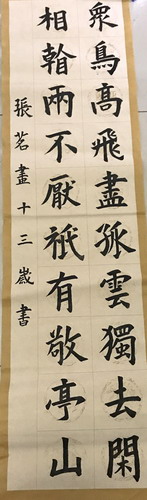 衆鳥高飛盡孤雲獨去閑
相翰兩不厭祇有敬亭山
張茗畫十三歲書